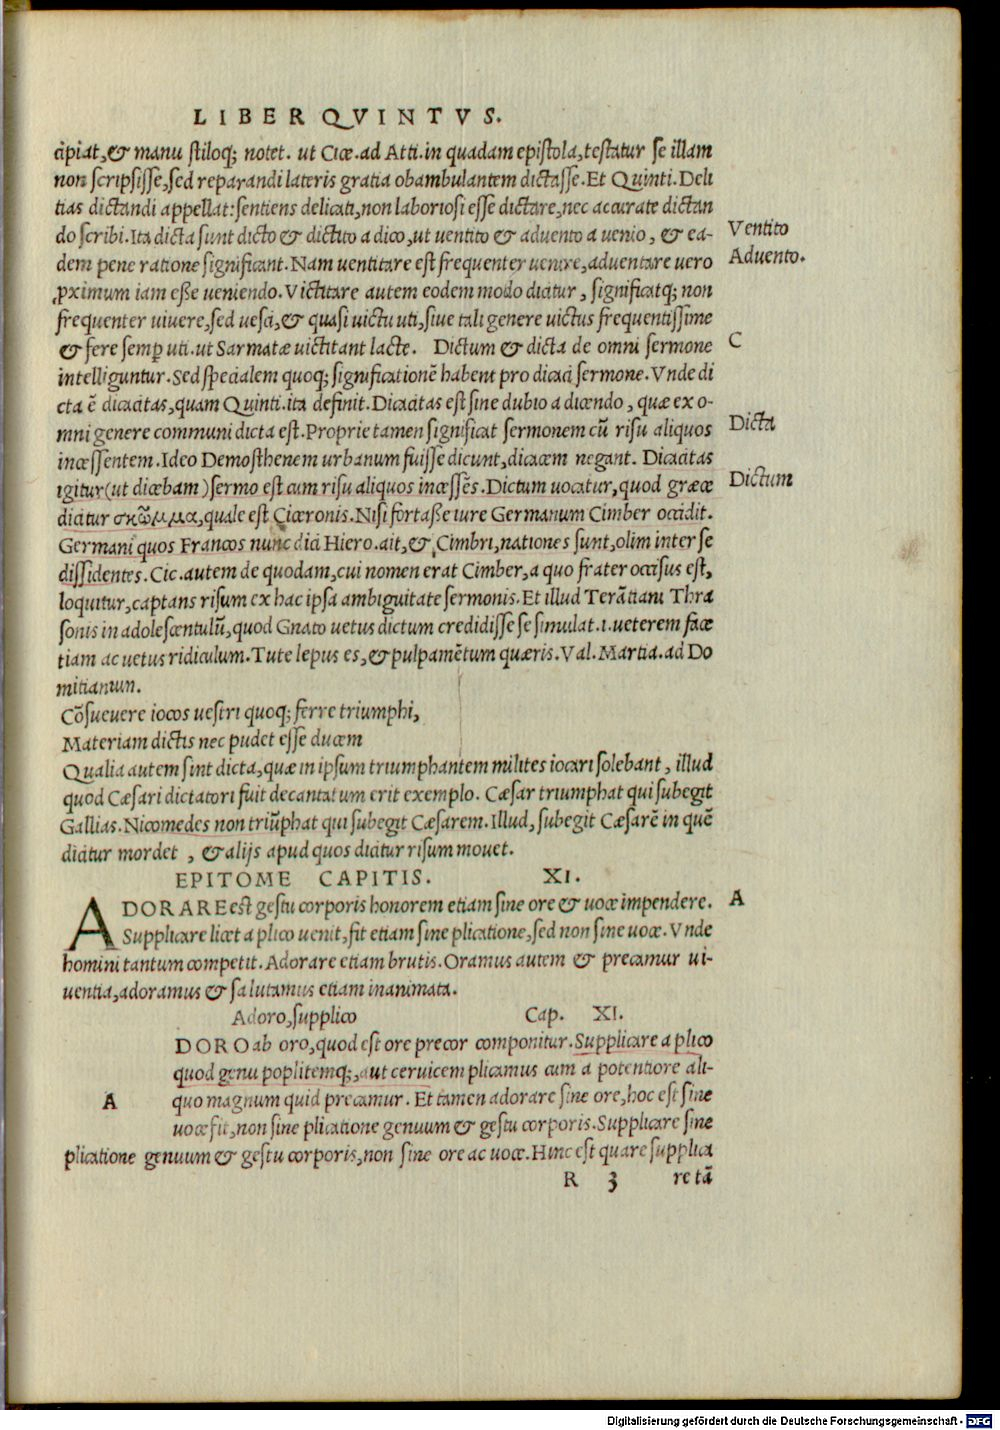 LIBER QVINTVS.
cipiat, & manu stiloq; notet. ut Cice. ad Atti. in quadam epistola, testatur se illam
non scripsisse, sed reparandi lateris gratia obambulantem dictasse. Et Quinti. Deli
tias dictandi appellat: sentiens delicati, non laboriosi esse dictare, nec accurate dictan
do scribi. Ita dicta sunt dicto & dictito a dico, ut uentito & aduento a uenio, & ea-
Ventito
dem pene ratione significant. Nam uentitare est frequenter uenire, aduentare uero
Aduento.
ꝓximum iam esse ueniendo. Victitare autem eodem modo dicitur, significatq; non
frequenter uiuere, sed uesci, & quasi uictu uti, siue tali genere uictus frequentissime
& fere semꝑ uti. ut Sarmatæ uictitant lacte. Dictum & dicta de omni sermone
C
intelliguntur. Sed specialem quoq; significationē habent pro dicaci sermone. Vnde di
cta ē dicacitas, quam Quinti. ita definit. Dicacitas est sine dubio a dicendo, quæ ex o-
mni genere communi dicta est. Proprie tamen significat sermonem cū risu aliquos
Dicta
incessentem. Ideo Demosthenem urbanum fuisse dicunt, dicacem negant. Dicacitas
igitur (ut dicebam) sermo est cum risu aliquos incessēs. Dictum uocatur, quod græce
Dictum
dicitur σκῶμμα, quale est Ciceronis. Nisi fortasse iure Germanum Cimber occidit.
Germani quos Francos nunc dici Hiero. ait, & Cimbri, nationes sunt, olim inter se
dissidentes. Cic. autem de quodam, cui nomen erat Cimber, a quo frater occisus est,
loquitur, captans risum ex hac ipsa ambiguitate sermonis. Et illud Terētiani Thra
sonis in adolescentulū, quod Gnato uetus dictum credidisse se simulat. i. ueterem face
tiam ac uetus ridiculum. Tute lepus es, & pulpamētum quæris. Val. Martia. ad Do
mitianum.
Cōsueuere iocos uestri quoq; ferre triumphi,
Materiam dictis nec pudet esse ducem
Qualia autem sint dicta, quæ in ipsum triumphantem milites iocari solebant, illud
quod Cæsari dictatori fuit decantatum erit exemplo. Cæsar triumphat qui subegit
Gallias. Nicomedes non triūphat qui subegit Cæsarem. Illud, subegit Cæsarē in quē
dicitur mordet , & alijs apud quos dicitur risum mouet.
EPITOME CAPITIS. XI.
ADORARE est gestu corporis honorem etiam sine ore & uoce impendere.
A
Supplicare licet a plico uenit, fit etiam sine plicatione, sed non sine uoce. Vnde
homini tantum competit. Adorare etiam brutis. Oramus autem & precamur ui-
uentia, adoramus & salutamus etiam inanimata.
Adoro, supplico Cap. XI.
DORO ab oro, quod est ore precor componitur. Supplicare a plico
quod genu poplitemq;, aut ceruicem plicamus cum a potentiore ali-
A
quo magnum quid precamur. Et tamen adorare sine ore, hoc est sine
uoce fit, non sine plicatione genuum & gestu corporis. Supplicare sine
plicatione genuum & gestu corporis, non sine ore ac uoce. Hinc est quare supplica
R 3 re tā
Digitalisierung gefördert durch die Deutsche Forschungsgemeinschaft - DFG